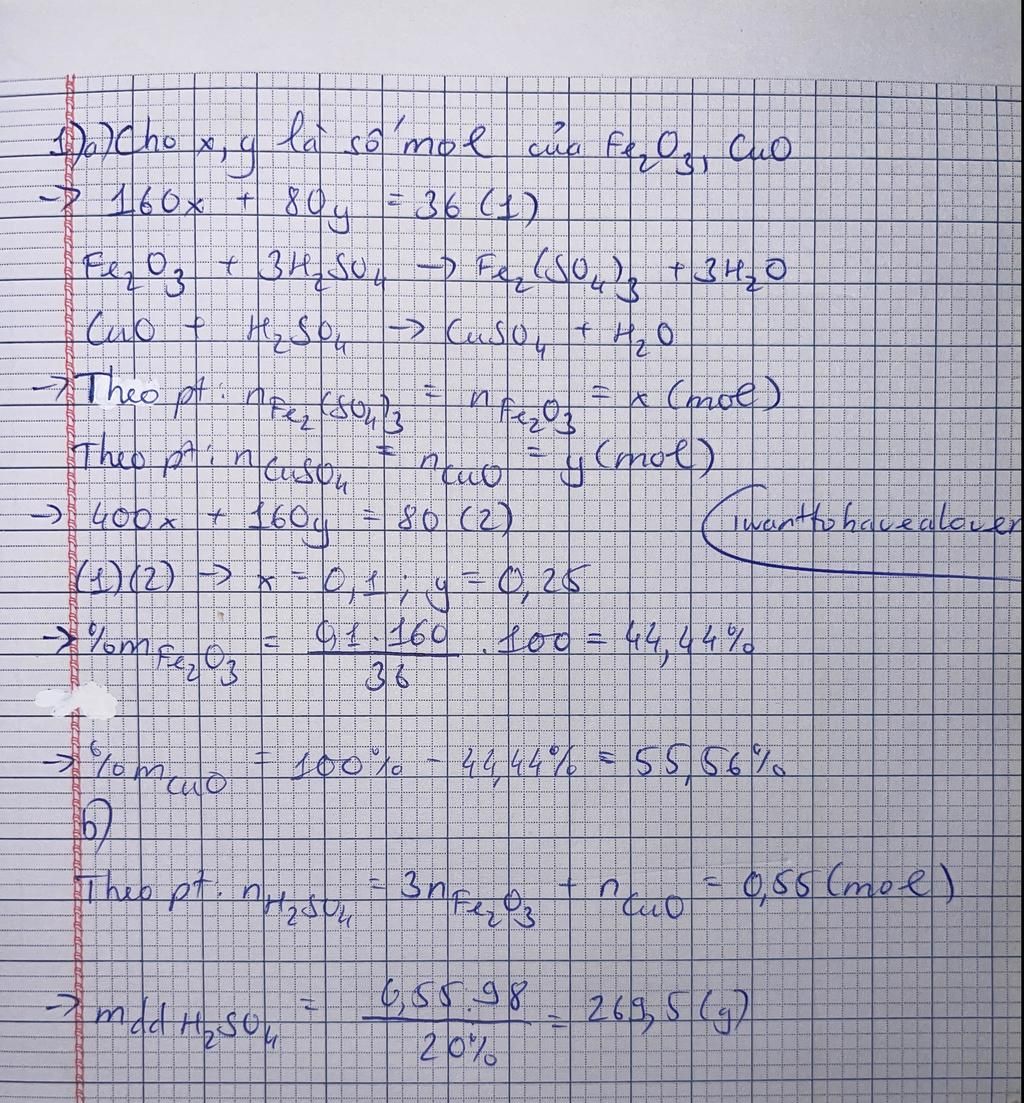 1)a) Cho x, y là số mol của Fe₂O₃, CuO
→ 160x + 80y = 36 (1)
Fe₂O₃ + 3H₂SO₄ → Fe₂(SO₄)₃ + 3H₂O
CuO + H₂SO₄ → CuSO₄ + H₂O
→ Theo pt: nFe₂(SO₄)₃ = nFe₂O₃ = x (mol)
Theo pt: nCuSO₄ = nCuO = y (mol)
→ 400x + 160y = 80 (2)
iwanttohavealover
(1)(2) → x = 0,1 ; y = 0,25
→ %mFe₂O₃ = 0,1.160/36 . 100 = 44,44%
→ %mCuO = 100% - 44,44% = 55,56%
b)
Theo pt: nH₂SO₄ = 3nFe₂O₃ + nCuO = 0,55 (mol)
→ mdd H₂SO₄ = 0,55.98/20% = 269,5 (g)